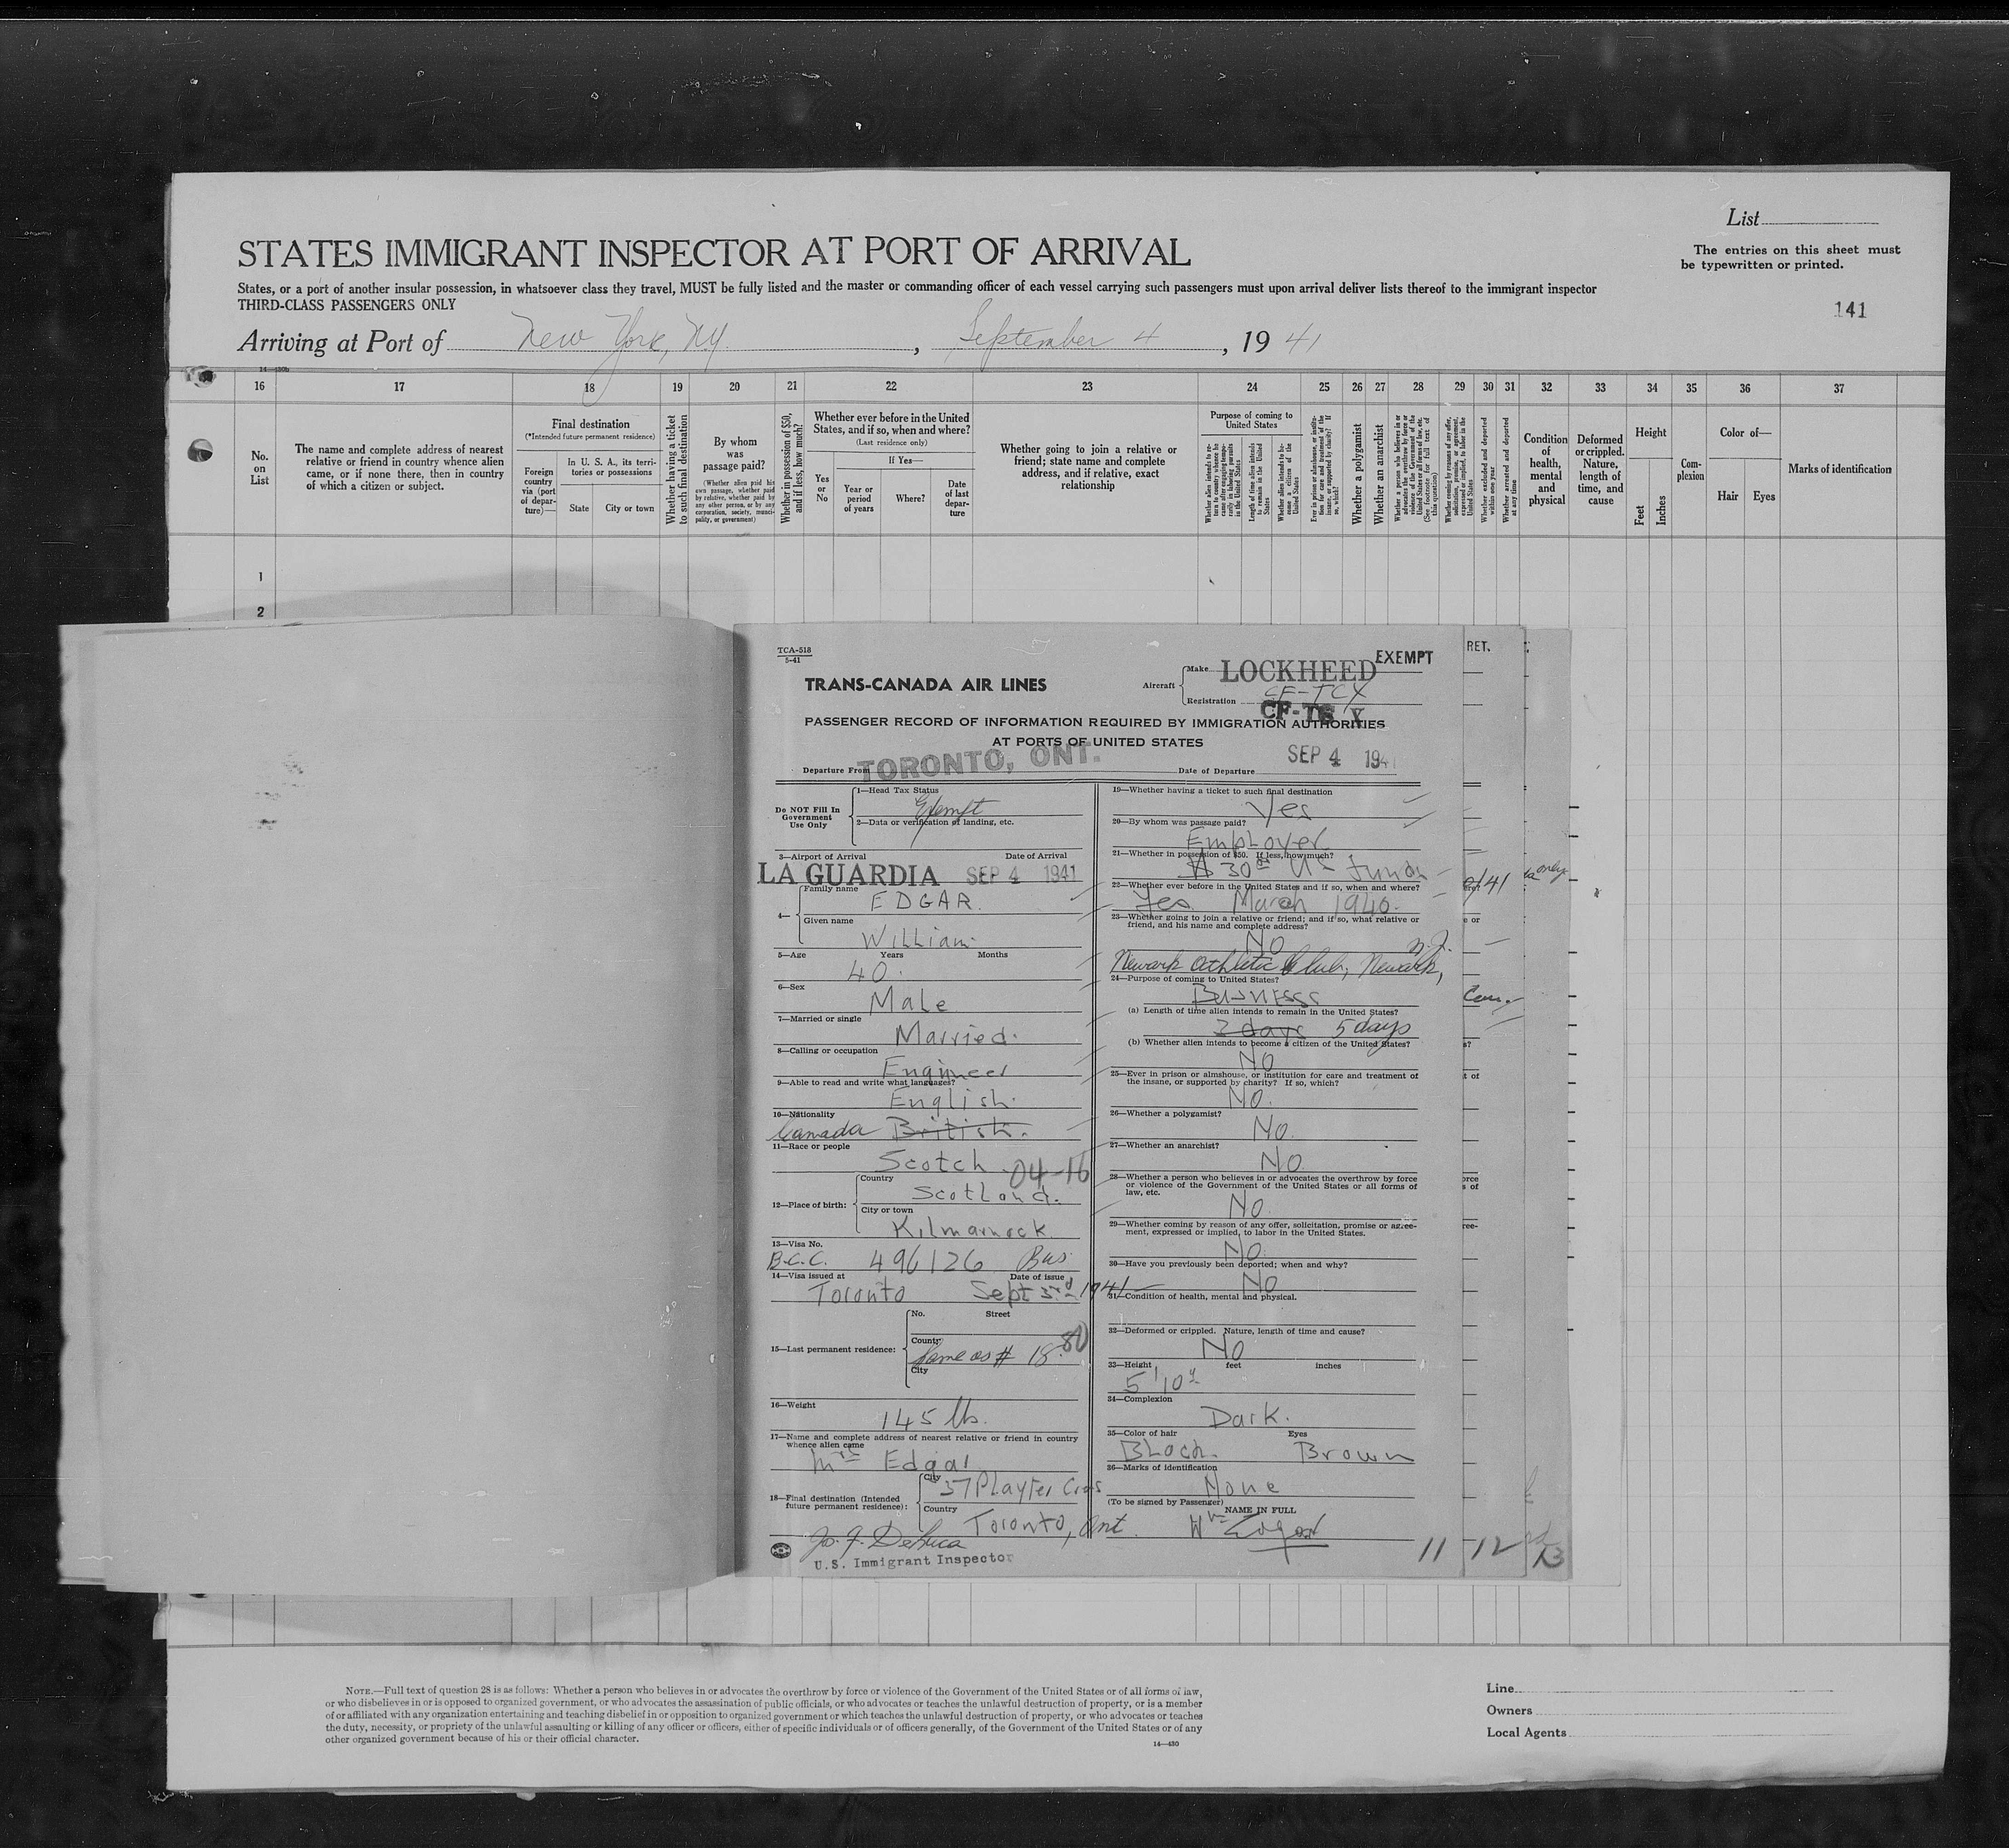 List
STATES IMMIGRANT INSPECTOR AT PORT OF ARRIVAL
The entries on this sheet must
be typewritten or printed.
States, or a port of another insular possession, in whatsoever class they travel, MUST be fully listed and the master or commanding officer of each vessel carrying such passengers must upon arrival deliver lists thereof to the immigrant inspector
THIRD-CLASS PASSENGERS ONLY
141
Arriving at Port of New York, NY. , September 4 , 19 41
16 17 18 19 20 21 22 23 24 25 26 27 28 29 30 31 32 33 34 35 36 37
No.
on
List
The name and complete address of nearest
relative or friend in country whence alien
came, or if none there, then in country
of which a citizen or subject.
Final destination
(*Intended future permanent residence)
Foreign
country
via (port
of depar-
ture)
In U. S. A., its terri-
tories or possessions
State
City or town
Whether having a ticket
to such final destination
By whom
was
passage paid?
(Whether alien paid his
own passage, whether paid
by relative, whether paid
by any other person, or by any
corporation, society, munci-
pality, or government)
Whether in possession of $50,
and if less, how much?
Whether ever before in the United
States, and if so, when and where?
(Last residence only)
Yes
or
No
If Yes—
Year or
period
of years
Where?
Date
of last
depar-
ture
Whether going to join a relative or
friend; state name and complete
address, and if relative, exact
relationship
Purpose of coming to
United States
Whether a polygamist
Whether an anarchist
Condition
of
health,
mental
and
physical
Deformed
or crippled.
Nature,
length of
time, and
cause
Height
Feet
Inches
Com-
plexion
Color of—
Hair
Eyes
Marks of identification
1
2
TCA-518
5-41
TRANS-CANADA AIR LINES
Aircraft
Make LOCKHEED
EXEMPT
Registration CF-TCX
PASSENGER RECORD OF INFORMATION REQUIRED BY IMMIGRATION AUTHORITIES
AT PORTS OF UNITED STATES
Departure From TORONTO, ONT.
Date of Departure SEP 4 1941
Do NOT Fill In
Government
Use Only
1—Head Tax Status
Exempt
2—Data or verification of landing, etc.
3—Airport of Arrival Date of Arrival
LA GUARDIA SEP 4 1941
4— Family name
EDGAR.
Given name
William
5—Age Years Months
40.
6—Sex
Male
7—Married or single
Married.
8—Calling or occupation
Engineer
9—Able to read and write what languages?
English.
10—Nationality
Canada British.
11—Race or people
Scotch 04-16
12—Place of birth:
Country
Scotland.
City or town
Kilmarnock
13—Visa No.
B.C.C. 496126 Bus
14—Visa issued at Date of issue
Toronto Sept 3rd 1941
15—Last permanent residence:
No. Street
County
Same as # 18 80
City
16—Weight
145 lb.
17—Name and complete address of nearest relative or friend in country
whence alien came
Mrs Edgar
18—Final destination (Intended
future permanent residence):
City
37 Playter Cres
Country
Toronto, Ont
U.S. Immigrant Inspector
19—Whether having a ticket to such final destination
Yes
20—By whom was passage paid?
Employer
21—Whether in possession of $50. If less, how much?
$ 30 US funds
22—Whether ever before in the United States and if so, when and where?
Yes March 1940.
23—Whether going to join a relative or friend; and if so, what relative or
friend, and his name and complete address?
No
Newark Athletic Club, Newark, N.J.
24—Purpose of coming to United States?
Business
(a) Length of time alien intends to remain in the United States?
2 days 5 days
(b) Whether alien intends to become a citizen of the United States?
No
25—Ever in prison or almshouse, or institution for care and treatment of
the insane, or supported by charity? If so, which?
No.
26—Whether a polygamist?
No.
27—Whether an anarchist?
No
28—Whether a person who believes in or advocates the overthrow by force
or violence of the Government of the United States or all forms of
law, etc.
No
29—Whether coming by reason of any offer, solicitation, promise or agree-
ment, expressed or implied, to labor in the United States.
No.
30—Have you previously been deported; when and why?
No
31—Condition of health, mental and physical.
32—Deformed or crippled. Nature, length of time and cause?
No
33—Height feet inches
5' 10"
34—Complexion
Dark.
35—Color of hair Eyes
Black. Brown
36—Marks of identification
None
(To be signed by Passenger)
NAME IN FULL
Wm Edgar
11 12 13
RET.
NOTE.—Full text of question 28 is as follows: Whether a person who believes in or advocates the overthrow by force or violence of the Government of the United States or of all forms of law,
or who disbelieves in or is opposed to organized government, or who advocates the assassination of public officials, or who advocates or teaches the unlawful destruction of property, or is a member
of or affiliated with any organization entertaining and teaching disbelief in or opposition to organized government or which teaches the unlawful destruction of property, or who advocates or teaches
the duty, necessity, or propriety of the unlawful assaulting or killing of any officer or officers, either of specific individuals or of officers generally, of the Government of the United States or of any
other organized government because of his or their official character.
14—430
Line
Owners
Local Agents